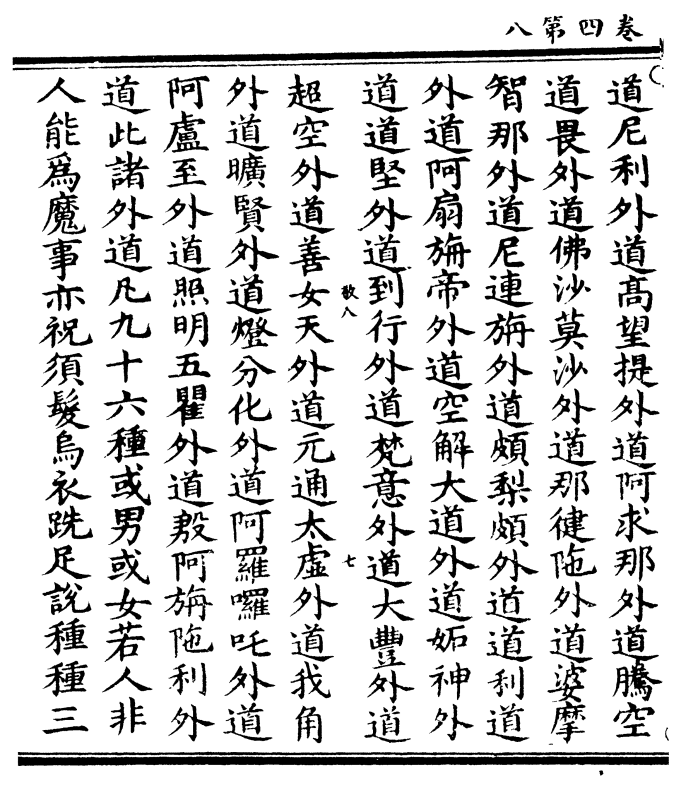 卷四第八
道尼利外道高望提外道阿求那外道騰空
道畏外道佛沙莫沙外道那健陁外道婆摩
智那外道尼連旃外道頗梨頗外道道利道
外道阿扇旃帝外道空解大道外道妬神外
道道堅外道到行外道梵意外道大豐外道
敬八　七
超空外道善女天外道元通太虛外道我角
外道曠賢外道燈分化外道阿羅囉吒外道
阿盧至外道照明五瞿外道㲉阿旃陁利外
道此諸外道凡九十六種或男或女若人非
人能爲魔事亦祝須髮烏衣跣足說種種三